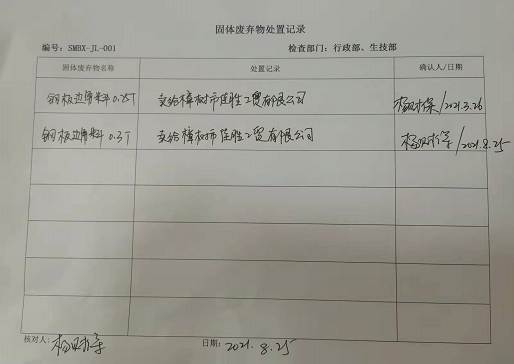 固体废弃物处置记录
编号：SMBX-JL-001 检查部门：行政部、生技部
固体废弃物名称 处置记录 确认人/日期
钢板边角料0.25T 卖给樟树市佳胜工贸有限公司 杨财保/2021.3.26
钢板边角料0.3T 卖给樟树市佳胜工贸有限公司 杨财保/2021.8.25
核对人：杨财保 日期：2021.8.25